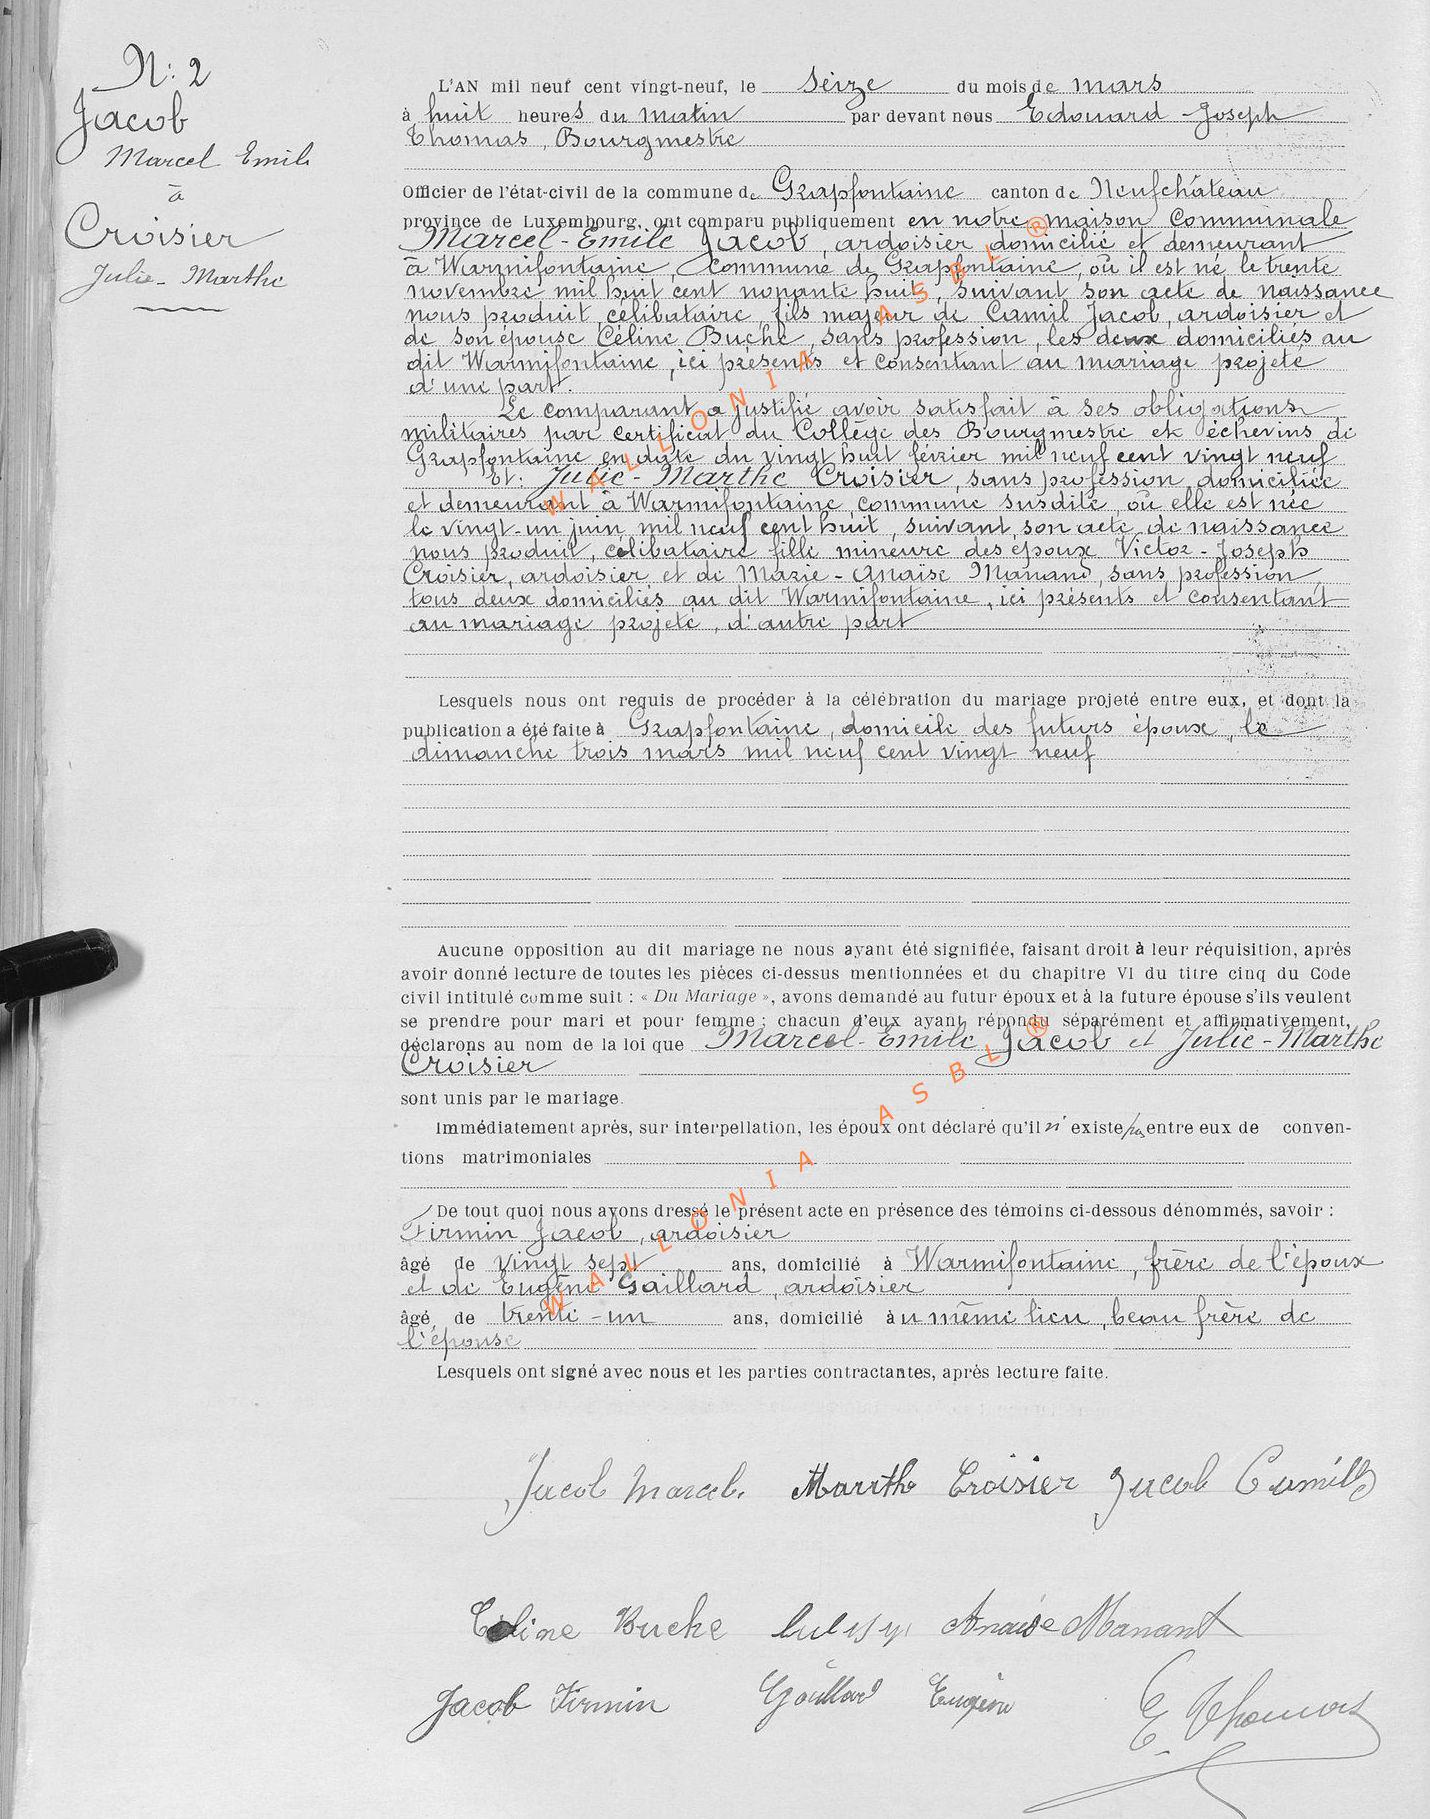 N: 2
Jacob
Marcel Emile
à
Croisier
Julie-Marthe
L'AN mil neuf cent vingt-neuf, le seize du mois de mars
à huit heures du matin par devant nous Edouard-Joseph
Thomas, Bourgmestre
Officier de l'état-civil de la commune de Grapfontaine canton de Neufchâteau
province de Luxembourg, ont comparu publiquement en notre maison Communale
Marcel-Emile Jacob, ardoisier domicilié et demeurant
à Warmifontaine, Commune de Grapfontaine, où il est né le trente
novembre mil huit cent nonante huit, suivant son acte de naissance
nous produit, célibataire, fils majeur de Camil Jacob, ardoisier et
de son épouse Céline Buche, sans profession, les deux domiciliés au
dit Warmifontaine, ici présents et consentant au mariage projeté
d'une part.
Le comparant a justifié avoir satisfait à ses obligations
militaires par certificat du Collège des Bourgmestre et échevins de
Grapfontaine en date du vingt huit février mil neuf cent vingt neuf
Et: Julie-Marthe Croisier, sans profession, domiciliée
et demeurant à Warmifontaine, commune susdite, où elle est née
le vingt-un juin mil neuf cent huit, suivant son acte de naissance
nous produit, célibataire fille mineure des époux Victor-Joseph
Croisier, ardoisier et de Marie-Anaïse Manand, sans profession,
tous deux domiciliés au dit Warmifontaine, ici présents et consentant
au mariage projeté, d'autre part
Lesquels nous ont requis de procéder à la célébration du mariage projeté entre eux, et dont la
publication a été faite à Grapfontaine, domicile des futurs époux, le
dimanche trois mars mil neuf cent vingt neuf
Aucune opposition au dit mariage ne nous ayant été signifiée, faisant droit à leur réquisition, après
avoir donné lecture de toutes les pièces ci-dessus mentionnées et du chapitre VI du titre cinq du Code
civil intitulé comme suit : « Du Mariage », avons demandé au futur époux et à la future épouse s'ils veulent
se prendre pour mari et pour femme ; chacun d'eux ayant répondu séparément et affirmativement,
déclarons au nom de la loi que Marcel-Emile Jacob et Julie-Marthe
Croisier
sont unis par le mariage.
Immédiatement après, sur interpellation, les époux ont déclaré qu'il n' existe pas entre eux de conven-
tions matrimoniales
De tout quoi nous avons dressé le présent acte en présence des témoins ci-dessous dénommés, savoir :
Firmin Jacob, ardoisier
âgé de vingt sept ans, domicilié à Warmifontaine, frère de l'époux
et de Eugène Gaillard, ardoisier
âgé de trente-un ans, domicilié au même lieu, beau frère de
l'épouse
Lesquels ont signé avec nous et les parties contractantes, après lecture faite.
Jacob Marcel. Marthe Croisier Jacob Camille
Céline Buche Anaïse Manant
Jacob Firmin Gaillard Eugène E. Thomas
WALLONIA ASBL ®
WALLONIA ASBL ®